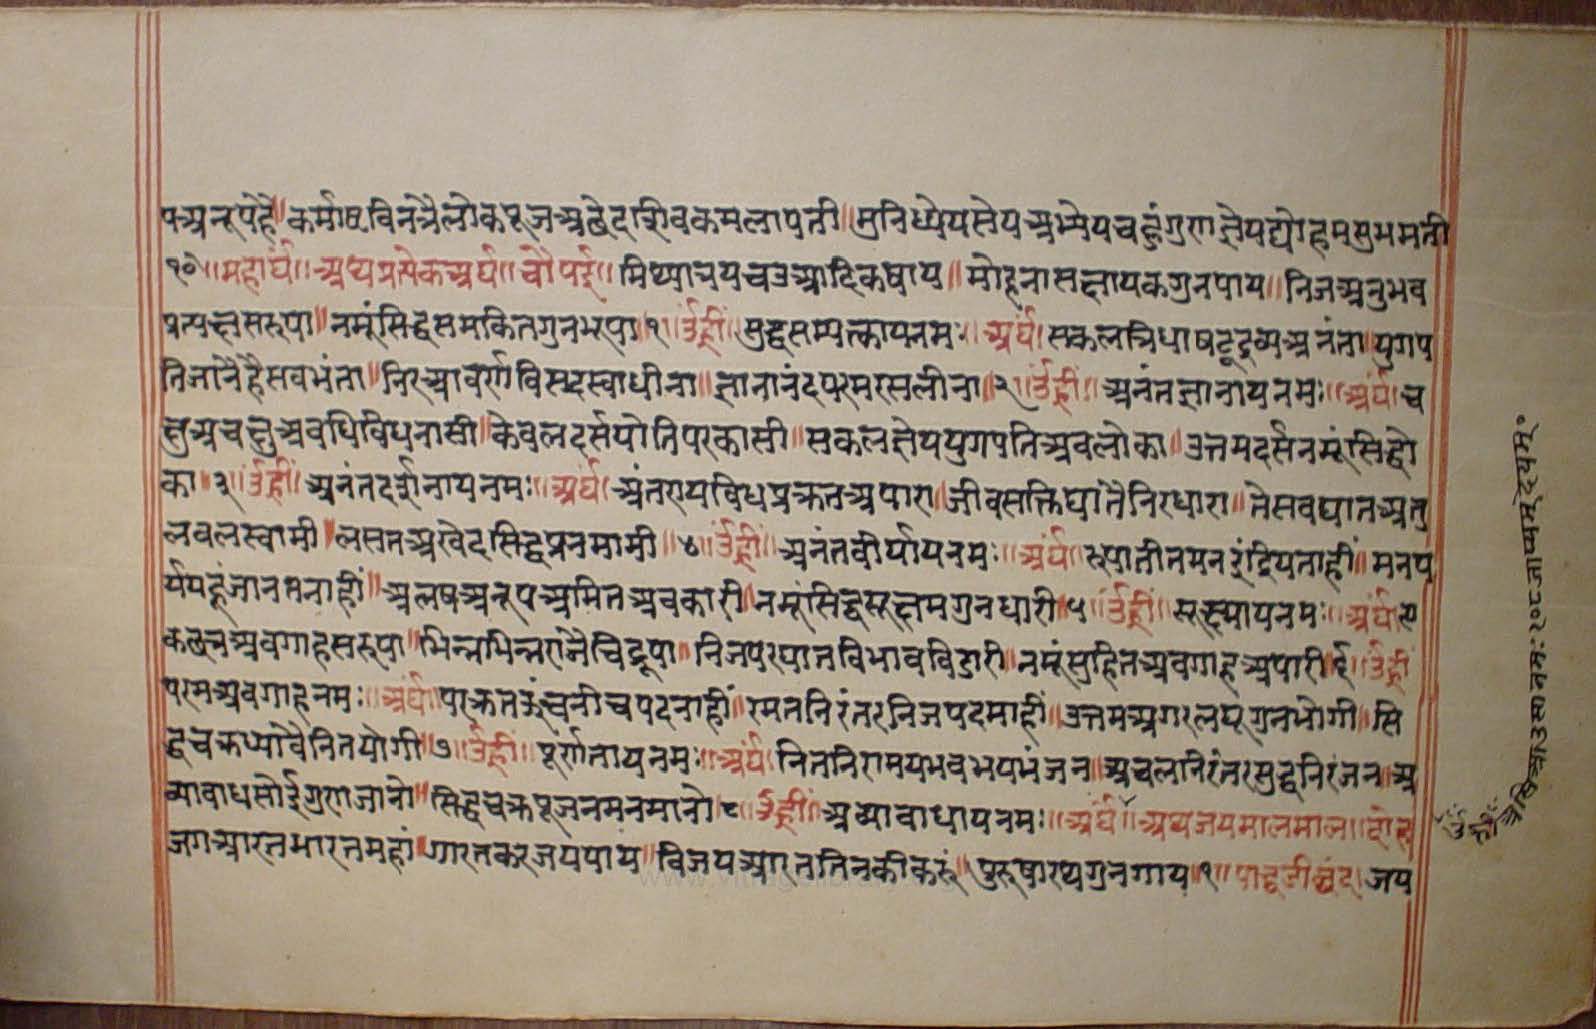 पअनूपहै॥ कर्माष्टविनत्रैलोकपूजअछेदशिवकमलापती॥ मुनिध्येयसेयअभेयचहुंगुणज्ञेयद्योहमसुभमती
१०॥ महार्घ॥ अथप्रत्येकअर्घ॥ चौपई॥ मिथ्यात्रयचउआदिकषाय॥ मोहनासछायकगुनपाय॥ निजअनुभव
प्रत्यछसरूपा॥ नमूंसिद्धसमकितगुनभूपा॥१॥ ॐह्रीं॥ सुद्धसम्यत्कायनमः॥ अर्घं॥ सकलत्रिधाषट्द्रव्यअनंता॥ युगप
तिजानेहैसवभंता॥ निरआवर्णविसदस्वाधीना॥ ज्ञानानंदपरमरसलीना॥२॥ ॐह्रीं॥ अनंतज्ञानायनमः॥ अर्घं॥ च
छुअचछुअवधिविधनासी॥ केवलदर्सयोतिपरकासी॥ सकलज्ञेययुगपतिअवलोका॥ उत्तमदर्सनमूंसिद्धो
का॥३॥ ॐह्रीं॥ अनंतदर्शनायनमः॥ अर्घं॥ अंतरायविधप्रक्रतअपारा॥ जीवसक्तिघातैनिरधारा॥ तेसवघातअतु
लवलस्वामी॥ लसतअखेदसिद्धप्रनमामी॥४॥ ॐह्रीं॥ अनंतवीर्यायनमः॥ अर्घं॥ रूपातीतमनइंद्रियनाहीं॥ मनप
र्ययहूंजानतनाहीं॥ अलषअनूपअमितअवकारी॥ नमूंसिद्धसूछमगुनधारी॥५॥ ॐह्रीं॥ सूक्ष्मायनमः॥ अर्घं॥ ए
कछेत्रअवगाहसरूपा॥ भिन्नभिन्नराजैचिद्रूपा॥ निजपरघातविभावविडारी॥ नमूंसुहितअवगाहअपारी॥६॥ ॐह्रीं
परमअवगाहनमः॥ अर्घं॥ परक्रतऊंचनीचपदनाहीं॥ रमतनिरंतरनिजपदमाहीं॥ उत्तमअगरलघुगुनभोगी॥ सि
द्धचक्रध्यावैनितयोगी॥७॥ ॐह्रीं॥ पूर्णतायनमः॥ अर्घं॥ नितनिरामयभवभयभंजन॥ अचलनिरंतरसुद्धनिरंजन॥ अ
व्यावाधसोईगुणजानो॥ सिद्धचक्रपूजनमनमानो॥८॥ ॐह्रीं॥ अव्यावाधायनमः॥ अर्घं॥ अथजयमालमाल॥ दोहा
जगआरतभारतमहां॥ गारतकरजयपाय॥ विजयआरततिनकीकरूं॥ पुरुषारथगुनगाय॥१॥ पद्धडीछंद॥ जय
ॐह्रीं असिआउसानमः१०८जाप्यमदेयम्